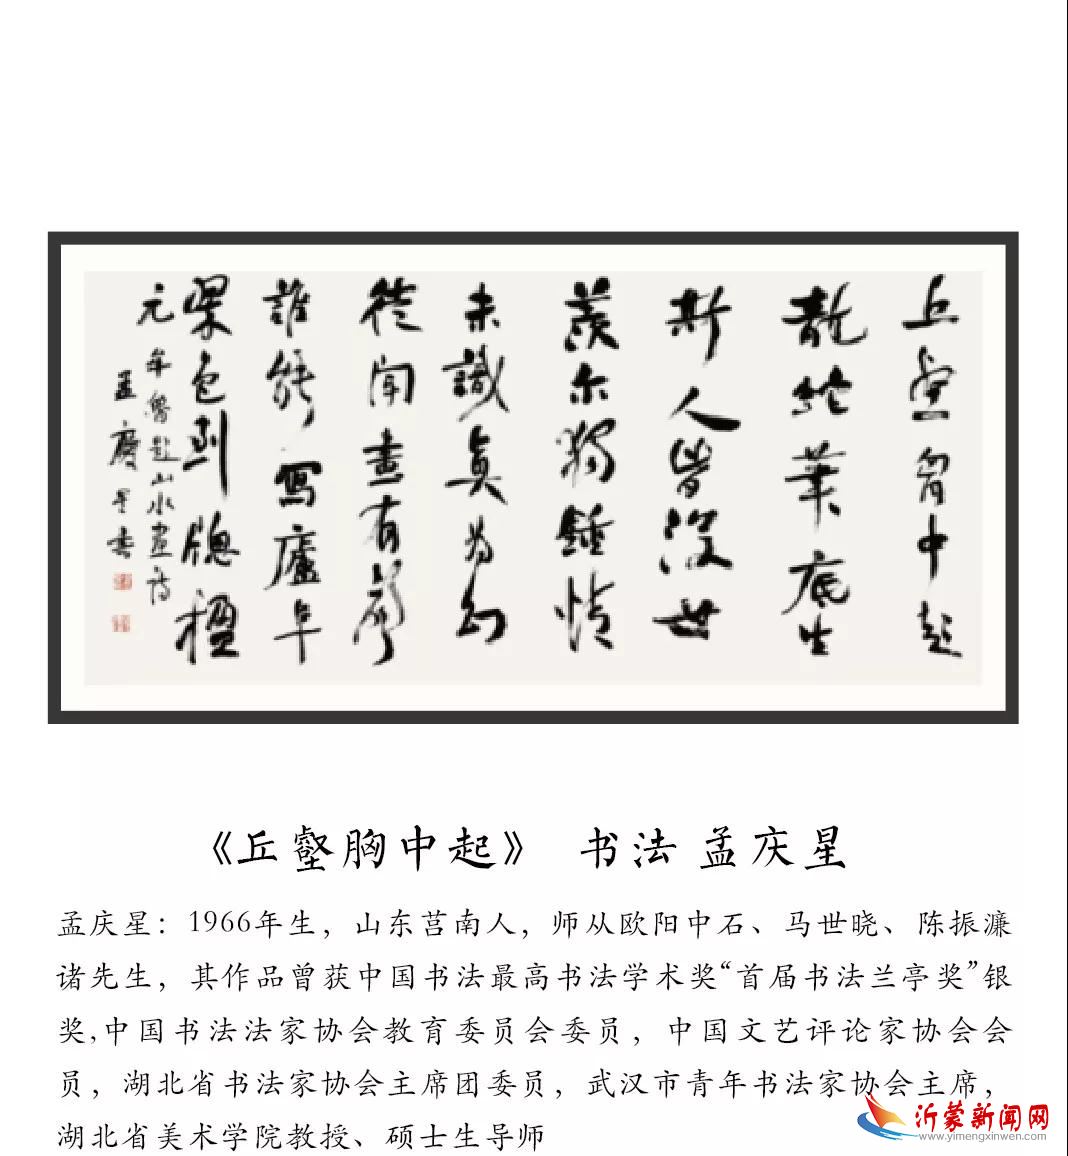 丘壑胷中起
龍蛇筆底生
斯人皆没世
羨尔獨鍾情
未識真為幻
聞畫有聲
誰能寫廬阜
色到牕楹
元牟魯題山水畫詩
孟慶星書
《丘壑胸中起》 书法 孟庆星
孟庆星：1966年生，山东莒南人，师从欧阳中石、马世晓、陈振濂
诸先生，其作品曾获中国书法最高书法学术奖“首届书法兰亭奖”银
奖,中国书法法家协会教育委员会委员，中国文艺评论家协会会
员，湖北省书法家协会主席团委员，武汉市青年书法家协会主席，
湖北省美术学院教授、硕士生导师
沂蒙新闻网
www.yimengxinwen.com